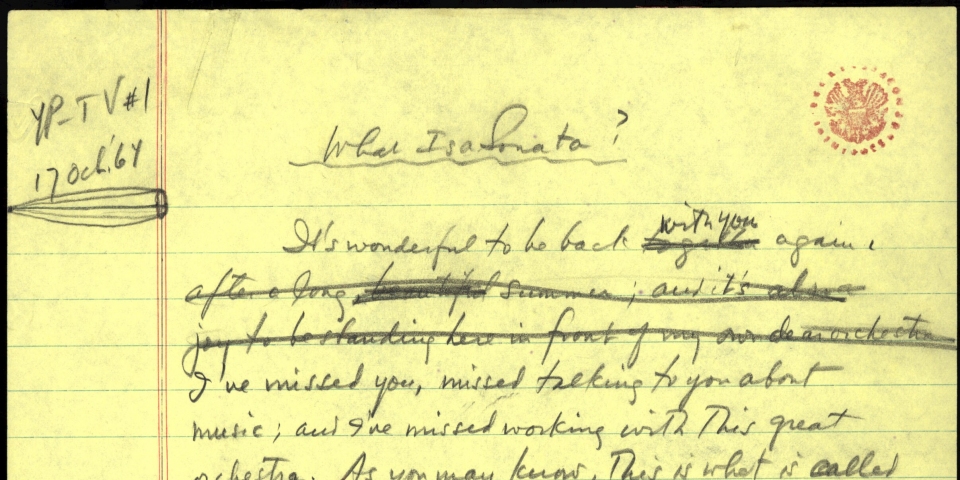 YP-TV #1
17 Oct. '64
What Is a Sonata?
with you
It's wonderful to be back together again.
after a long, beautiful summer; and it's also a
joy to be standing here in front of my own dear orchestra
I've missed you, missed talking to you about
music; and I've missed working with This great
orchestra. As you may know, This is what is called